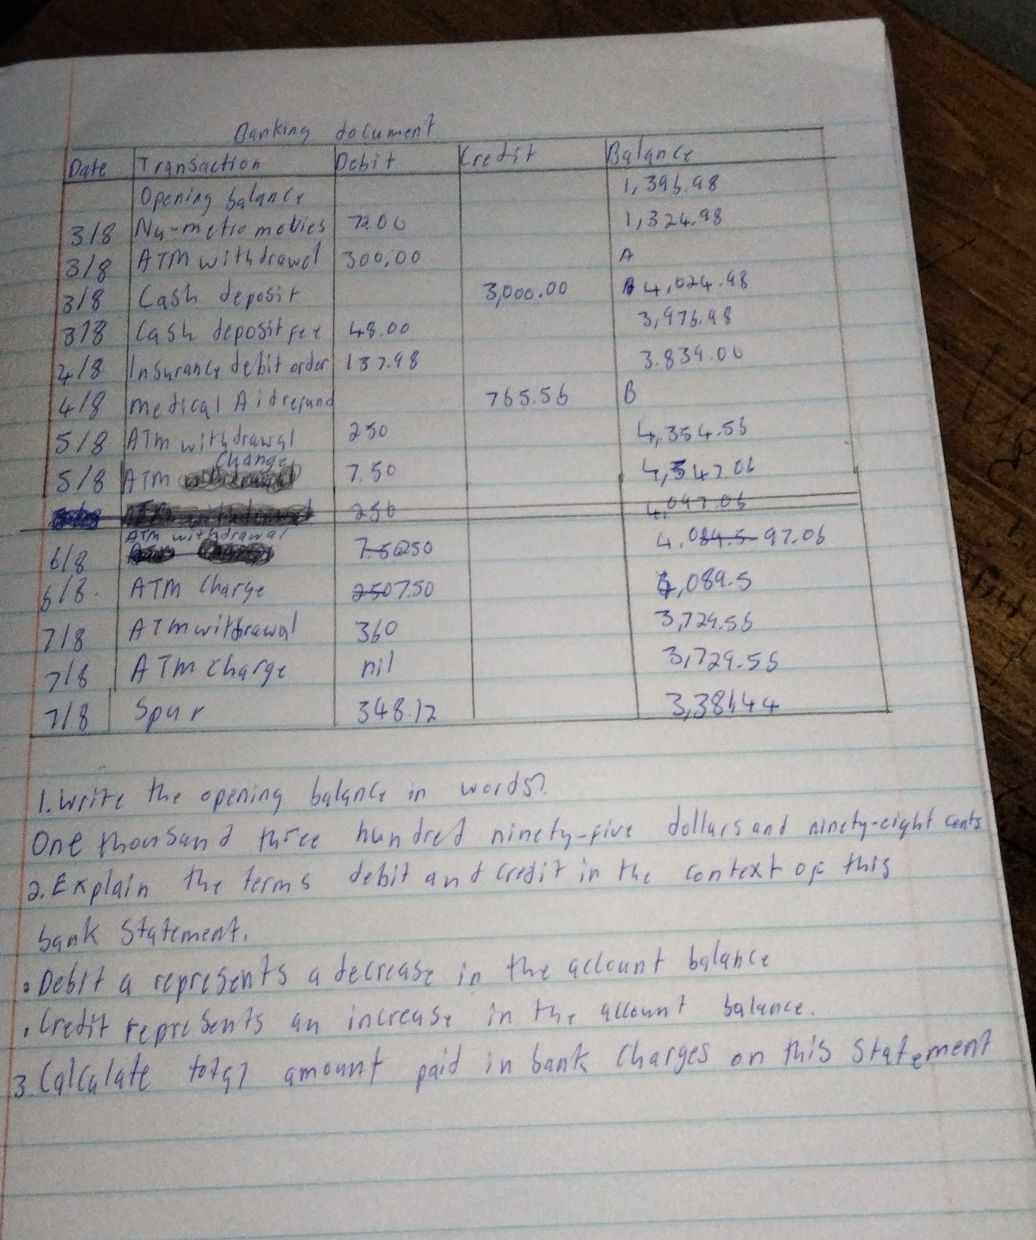 Banking document
Date Transaction Debit Credit Balance
Opening balance 1,396.98
3/8 Nu-metro movies 72.00 1,324.98
3/8 ATM withdrawel 300,00 A
3/8 Cash deposit 3,000.00 4,024.98
3/8 Cash deposit fee 48.00 3,976.98
4/8 Insurance debit order 137.98 3.839.00
4/8 medical Aid refund 765.56 B
5/8 ATM withdrawal 250 4,354.56
5/8 ATM Change 7.50 4,347.06
250 4,097.06
6/8 ATM withdrawal 7.50 250 4,089.5 97.06
6/8. ATM Charge 250 7.50 4,089.5
7/8 ATM withrawal 360 3,729.56
7/8 ATM Charge nil 3,729.56
7/8 Spur 348.12 3,381.44
1. Write the opening balance in words?
One thousand three hundred ninety-five dollars and ninety-eight cents
2. Explain the terms debit and credit in the context of this
bank Statement.
• Debit a represents a decrease in the account balance
• Credit represents an increase in the account balance.
3. Calculate total amount paid in bank charges on this Statement